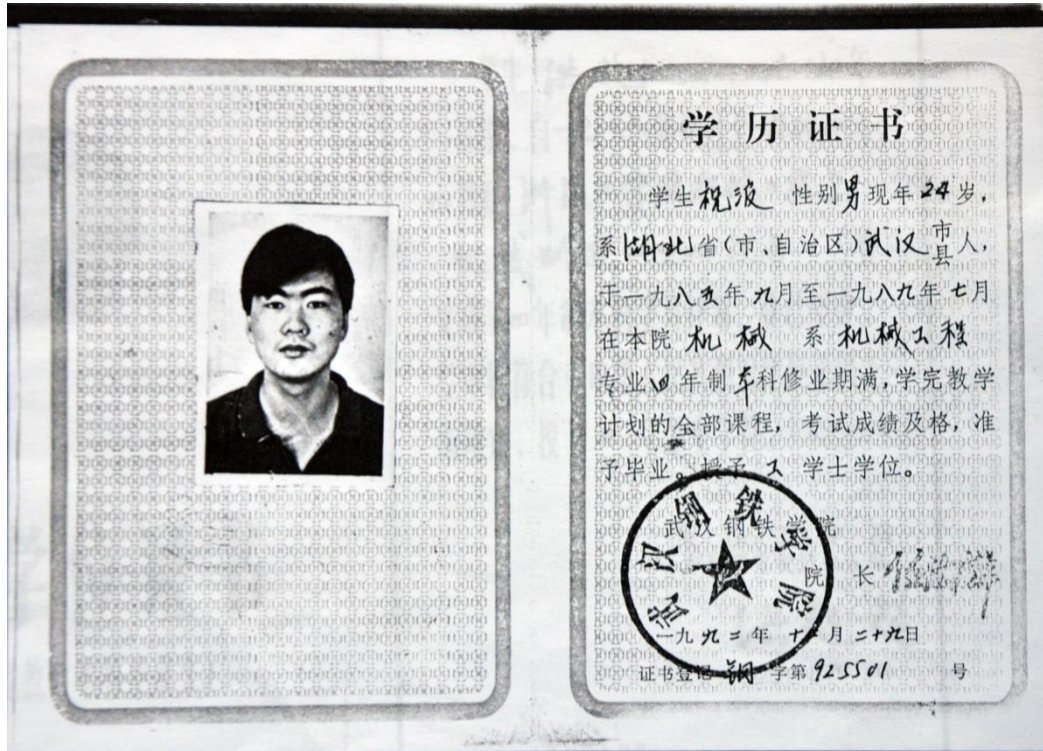 学历证书
学生祝波 性别男现年24岁,
系湖北省(市、自治区)武汉市县人,
于一九八五年九月至一九八九年七月
在本院 机械 系 机械工程
专业四年制本科修业期满,学完教学
计划的全部课程,考试成绩及格,准
予毕业。授予 工 学士学位。
武汉钢铁学院
武汉钢铁学院
院 长
一九九二年 十 月二十九日
证书登记 钢 字第925501 号